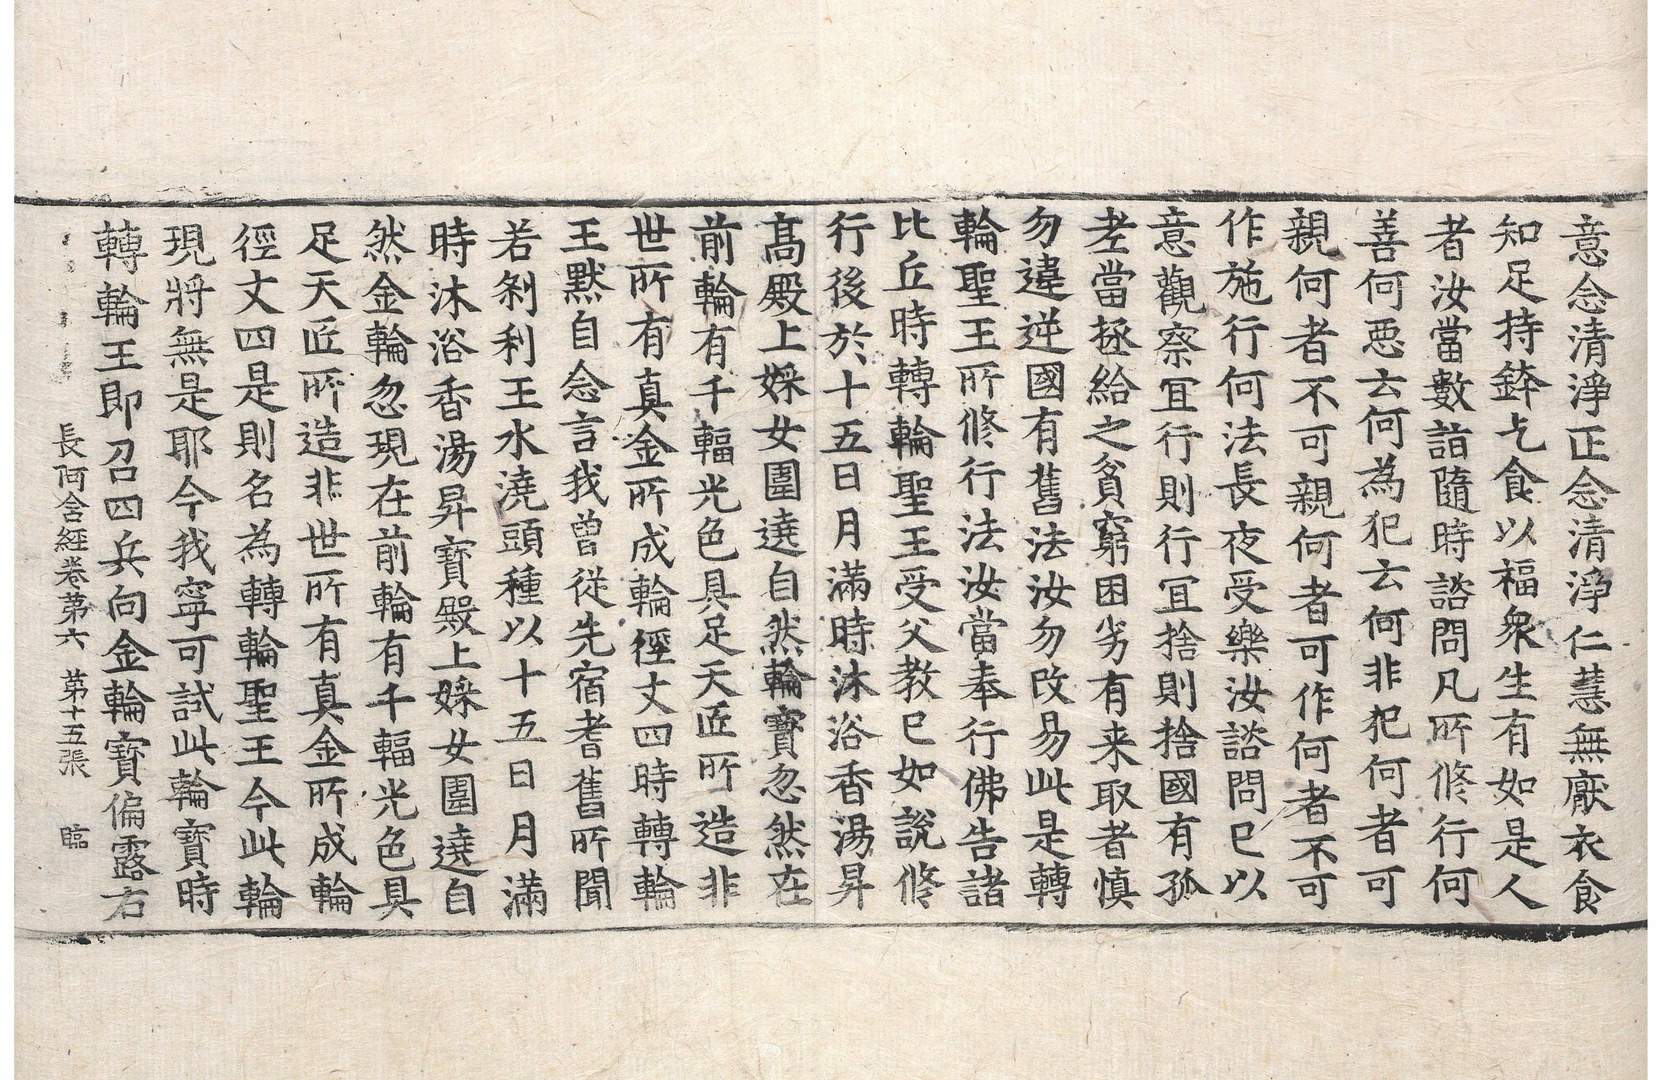 意念清淨正念清淨仁慧無厭衣食
知足持鉢乞食以福衆生有如是人
者汝當數詣隨時諮問凡所修行何
善何惡云何為犯云何非犯何者可
親何者不可親何者可作何者不可
作施行何法長夜受樂汝諮問已以
意觀察冝行則行冝捨則捨國有孤
老當拯給之貧窮困劣有来取者慎
勿違逆國有舊法汝勿改易此是轉
輪聖王所修行法汝當奉行佛告諸
比丘時轉輪聖王受父教已如說修
行後於十五日月滿時沐浴香湯昇
髙殿上婇女圍遶自然輪寶忽然在
前輪有千輻光色具足天匠所造非
世所有真金所成輪徑丈四時轉輪
王默自念言我曾從先宿耆舊所聞
若剎利王水澆頭種以十五日月滿
時沐浴香湯昇寶殿上婇女圍遶自
然金輪忽現在前輪有千輻光色具
足天匠所造非世所有真金所成輪
徑丈四是則名為轉輪聖王今此輪
現將無是耶今我寧可試此輪寶時
轉輪王即召四兵向金輪寶偏露右
長阿含經卷第六 第十五張 臨